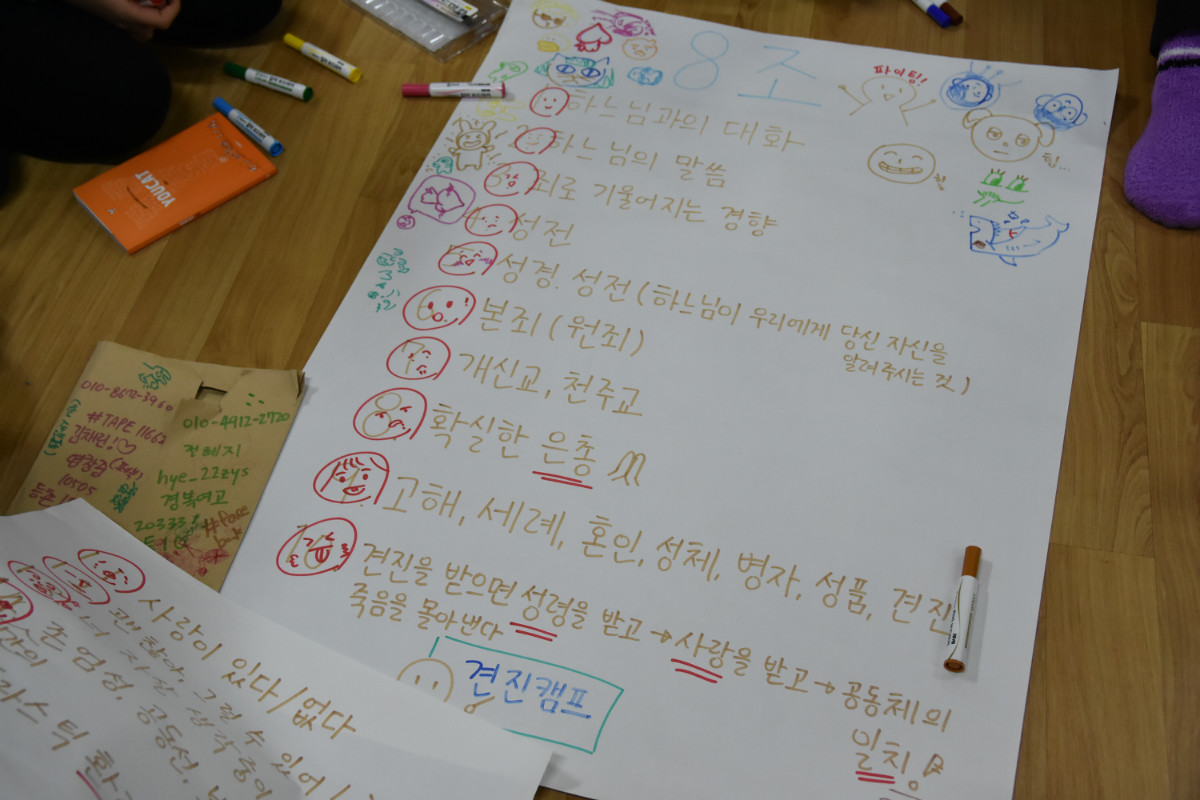 8조
파이팅!
하느님과의 대화
하느님의 말씀
죄로 기울어지는 경향
성전
성경. 성전 (하느님이 우리에게 당신 자신을
알려주시는 것)
본죄 (원죄)
개신교, 천주교
확실한 은총
고해, 세례, 혼인, 성체, 병자, 성품, 견진
견진을 받으면 성령을 받고 → 사랑을 받고 → 공동체의
죽음을 몰아낸다
일치!
견진캠프
YOUCAT
010-4912-2720
#TAPE 11662
전혜지
hye_22zys
10505
경북여고
사랑이 있다/없다
괜찮아, 그럴 수 있어
존엄성, 공동선,